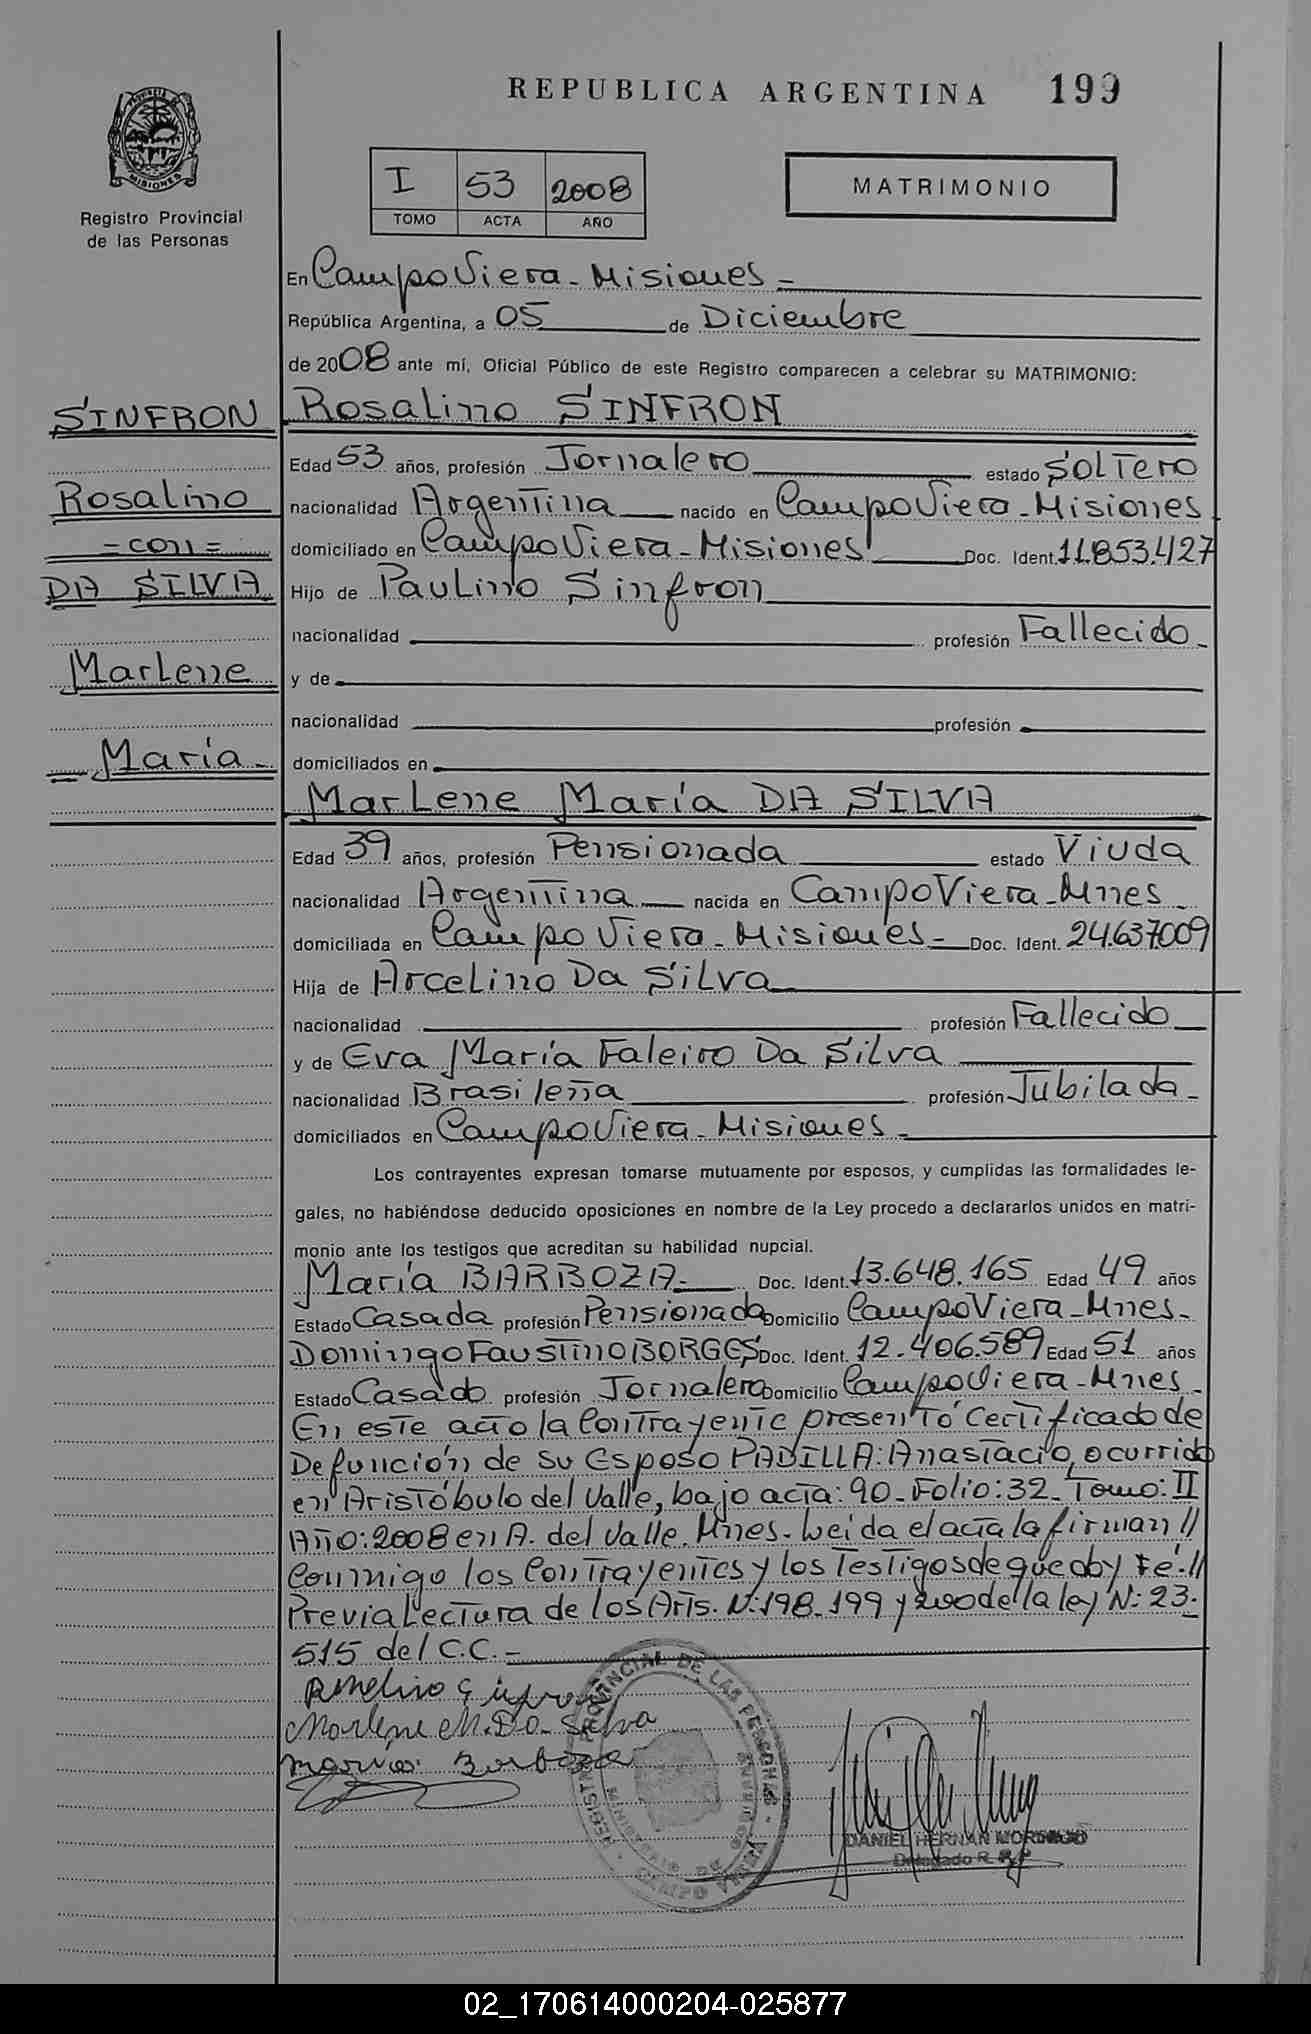 REPUBLICA ARGENTINA 199
PROVINCIA DE
MISIONES
Registro Provincial
de las Personas
I 53 2008
TOMO ACTA AÑO
MATRIMONIO
En Campo Viera - Misiones -
República Argentina, a 05 de Diciembre
de 2008 ante mí, Oficial Público de este Registro comparecen a celebrar su MATRIMONIO:
SINFRON
Rosalino
= con =
DA SILVA
Marlene
María -
Rosalino SINFRON
Edad 53 años, profesión Jornalero estado Soltero
nacionalidad Argentina nacido en Campo Viera - Misiones
domiciliado en Campo Viera - Misiones Doc. Ident. 11.853.427
Hijo de Paulino Sinfron
nacionalidad profesión Fallecido -
y de
nacionalidad profesión
domiciliados en
Marlene María DA SILVA
Edad 39 años, profesión Pensionada estado Viuda
nacionalidad Argentina nacida en Campo Viera - Mnes -
domiciliada en Campo Viera - Misiones - Doc. Ident. 24.637009
Hija de Arcelino Da Silva
nacionalidad profesión Fallecido
y de Eva María Faleiro Da Silva
nacionalidad Brasileña profesión Jubilada -
domiciliados en Campo Viera - Misiones -
Los contrayentes expresan tomarse mutuamente por esposos, y cumplidas las formalidades le-
gales, no habiéndose deducido oposiciones en nombre de la Ley procedo a declararlos unidos en matri-
monio ante los testigos que acreditan su habilidad nupcial.
María BARBOZA - Doc. Ident. 13.648.165 Edad 49 años
Estado Casada profesión Pensionada Domicilio Campo Viera - Mnes -
Domingo Faustino BORGES Doc. Ident. 12.406.589 Edad 51 años
Estado Casado profesión Jornalero Domicilio Campo Viera - Mnes -
En este acto la Contrayente presentó Certificado de
Defunción de su Esposo PADILLA: Anastacio, ocurrido
en Aristóbulo del Valle, bajo acta: 90 - Folio: 32 - Tomo: II
Año: 2008 en A. del Valle. Mnes - Leída el acta la firman //
Conmigo los Contrayentes y los Testigos de que doy Fé - //
Previa Lectura de los Arts. N: 198 - 199 y 200 de la ley N: 23.
515 del C.C. -
Marlene M. Da Silva
María Barboza
REGISTRO PROVINCIAL DE LAS PERSONAS
MINISTERIO DE GOBIERNO
CAMPO VIERA
DANIEL HERNAN
Delegado R. P. P
02_170614000204-025877